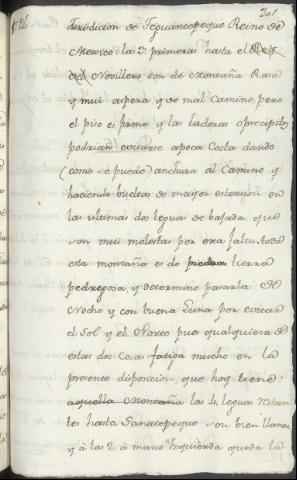 301
Jurisdicion de Teguantepeque Reino de
Mexico: las 2 primeras hasta el
Novillero son de Montaña Rasa
y mui aspera y de mal camino; pero
el piso es firme y las laderas o precipicios
podrian evitarse a poca Costa dando
(como se puede) anchura al Camino y
haciendo bueltas de maior estension en
las ultimas dos leguas de bajada que
son mui molestas por esta falta: toda
esta montaña es de piedras tierra
pedregosa, y determine pasarla de
Noche y con buena Luna por evitar
el Sol y el Norte pues qualquiera de
estas dos Cosas fatiga mucho en la
presente disposicion, que hoy tiene:
aquella Montaña las 4 leguas restan
tes hasta Sanatepeque son bien llanas
y a las 2 a mano Izquierda queda la